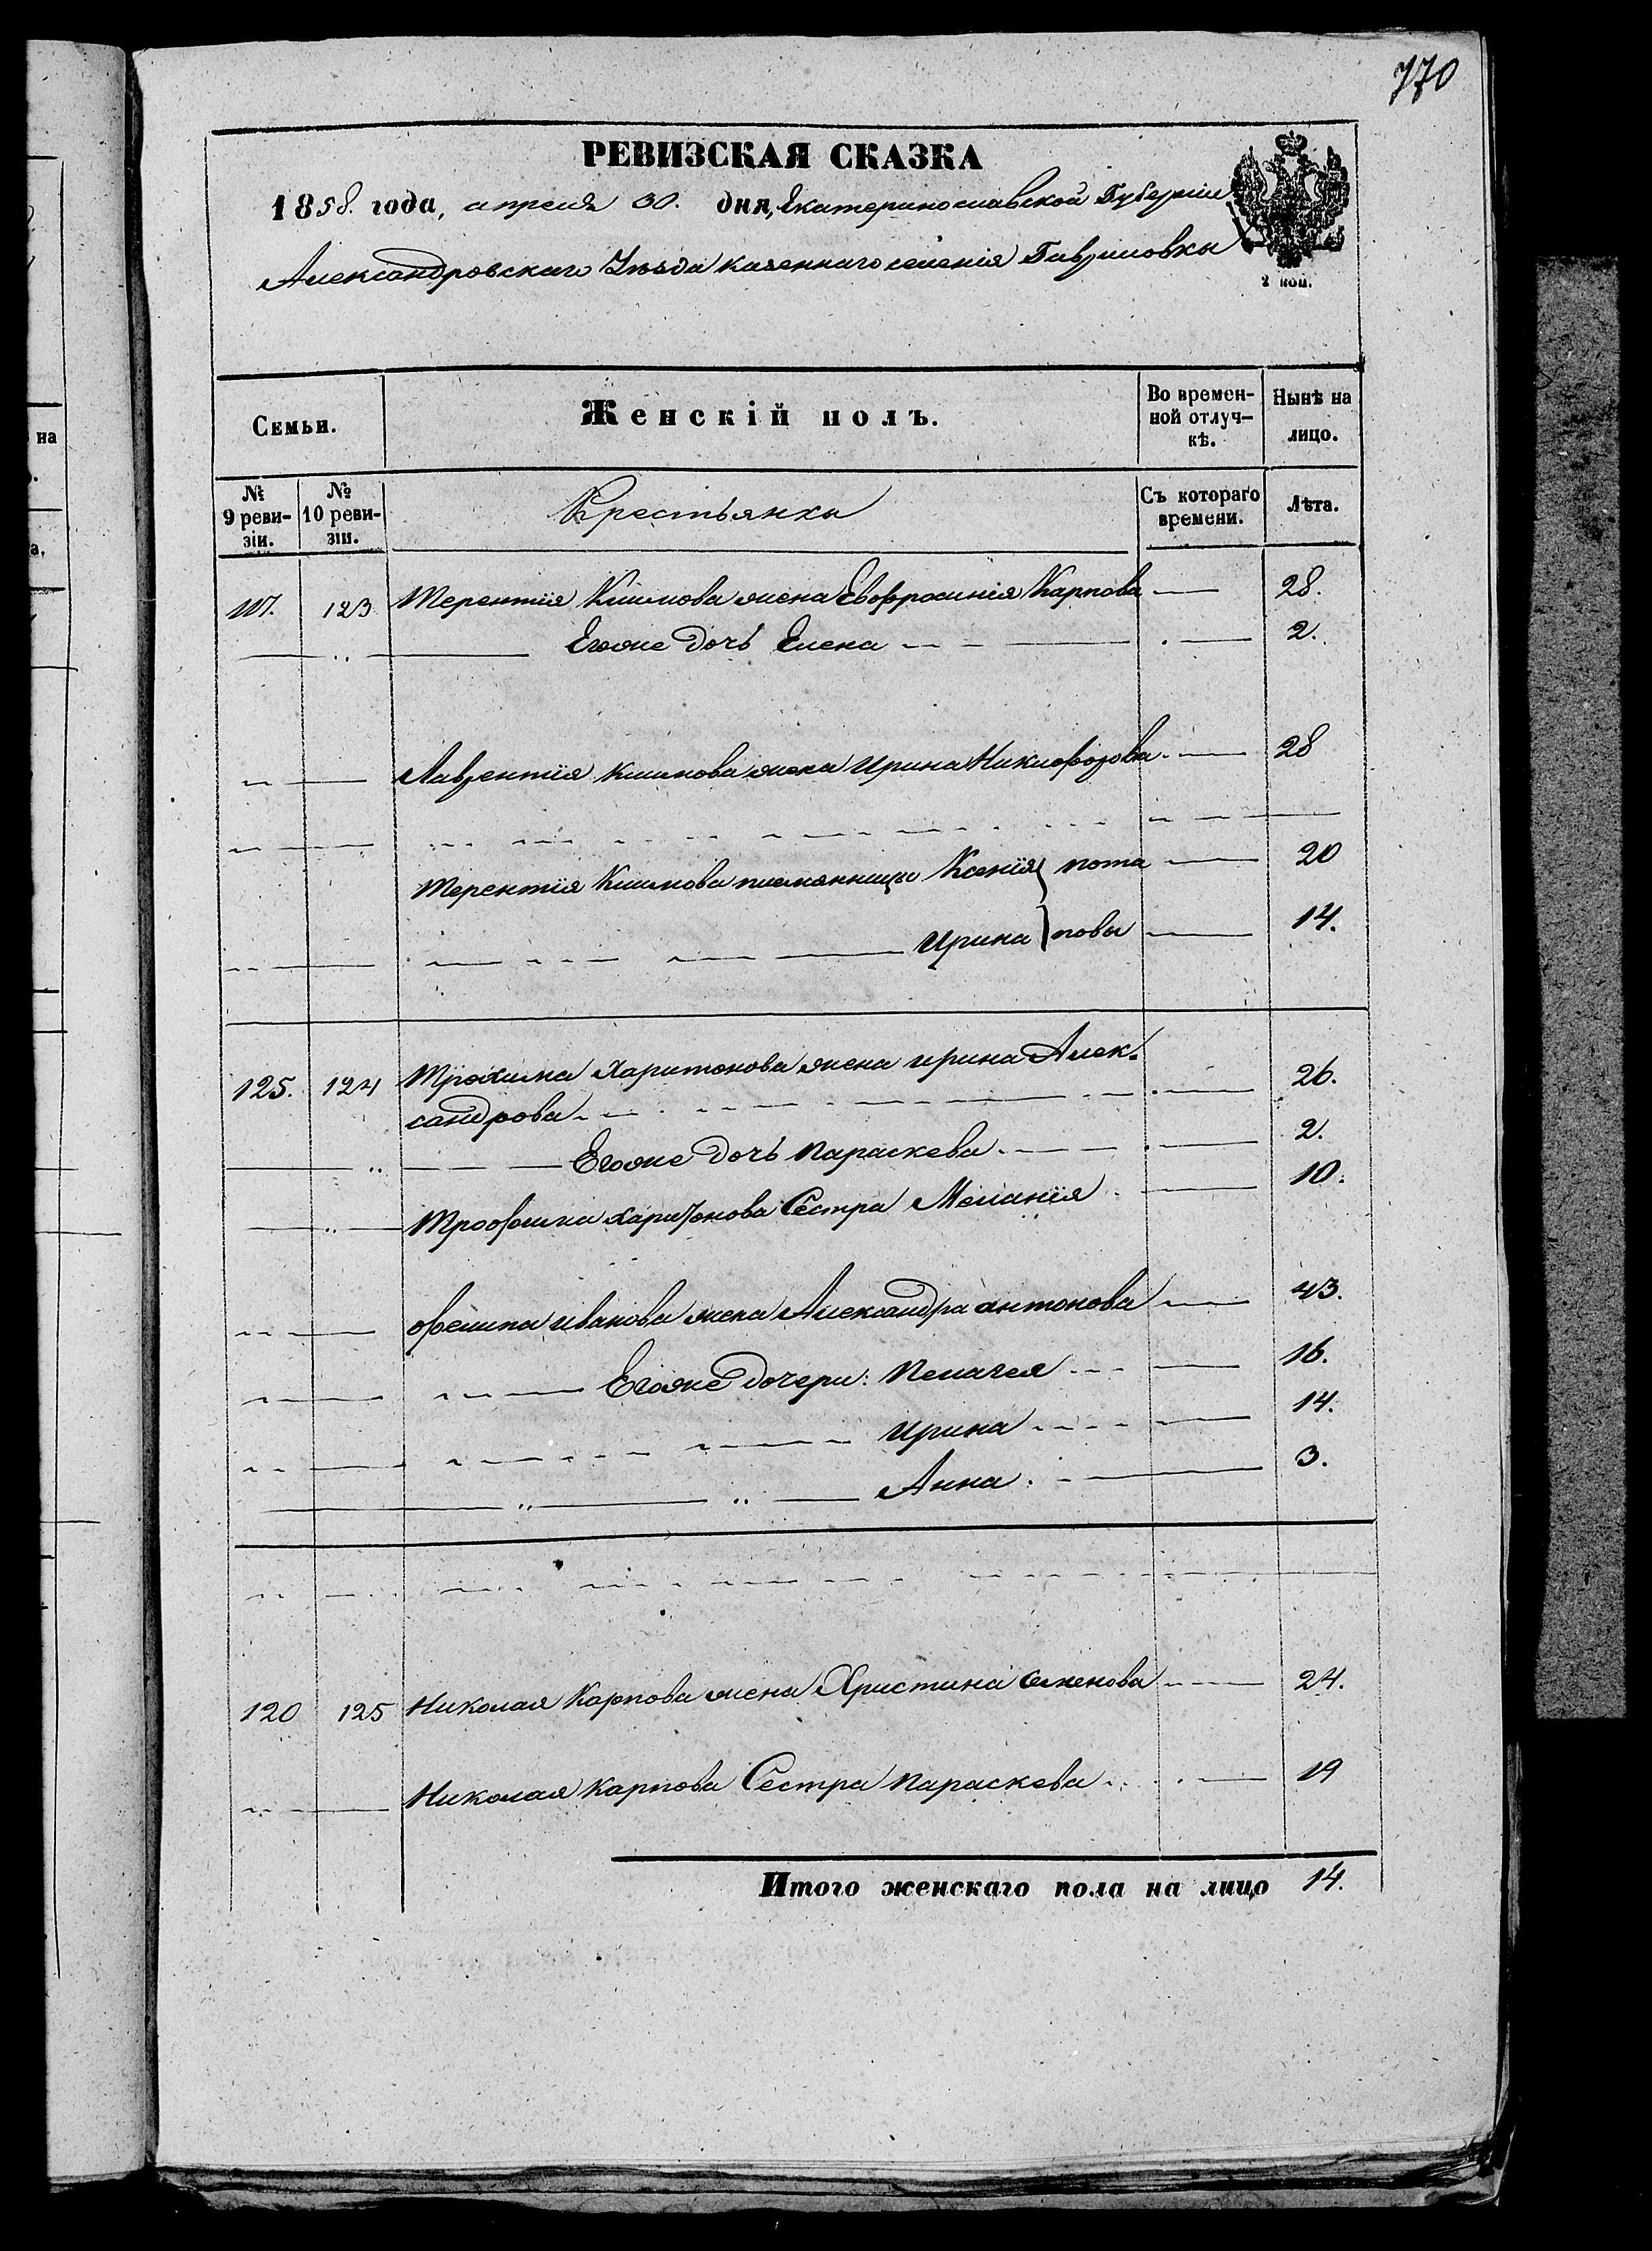 770
РЕВИЗСКАЯ СКАЗКА
1858. года, апреля 30. дня, Екатеринославской Губернии
Александровскаго Уѣзда казеннаго селенія Гавриловки
2 коп.
Семьи. Женскій полъ. Во времен-ной отлуч-кѣ. Нынѣ на лицо.
№ 9 реви-зіи. № 10 реви-зіи. Крестьянка Съ котораго времени. Лѣта.
117. 123 Терентія Климова жена Евфросинія Карпова 28.
Егоже дочь Елена 2.
Лаврентія Климова жена Ирина Никифорова 28
Терентія Климова племянницы Ксенія } пота 20
Ирина } повы 14.
125. 124 Трохима Харитонова жена Ирина Алек-
сандрова 26.
Егоже дочь Параскева 2.
Трофима Харитонова Сестра Меланія 10.
Фомина Иванова жена Александра Антонова 43.
Егоже дочери: Пелагея 16.
Ирина 14.
Анна 3.
120 125 Николая Карпова жена Христина Семенова 24.
Николая Карпова Сестра Параскева 19
Итого женскаго пола на лицо 14.
на
а.